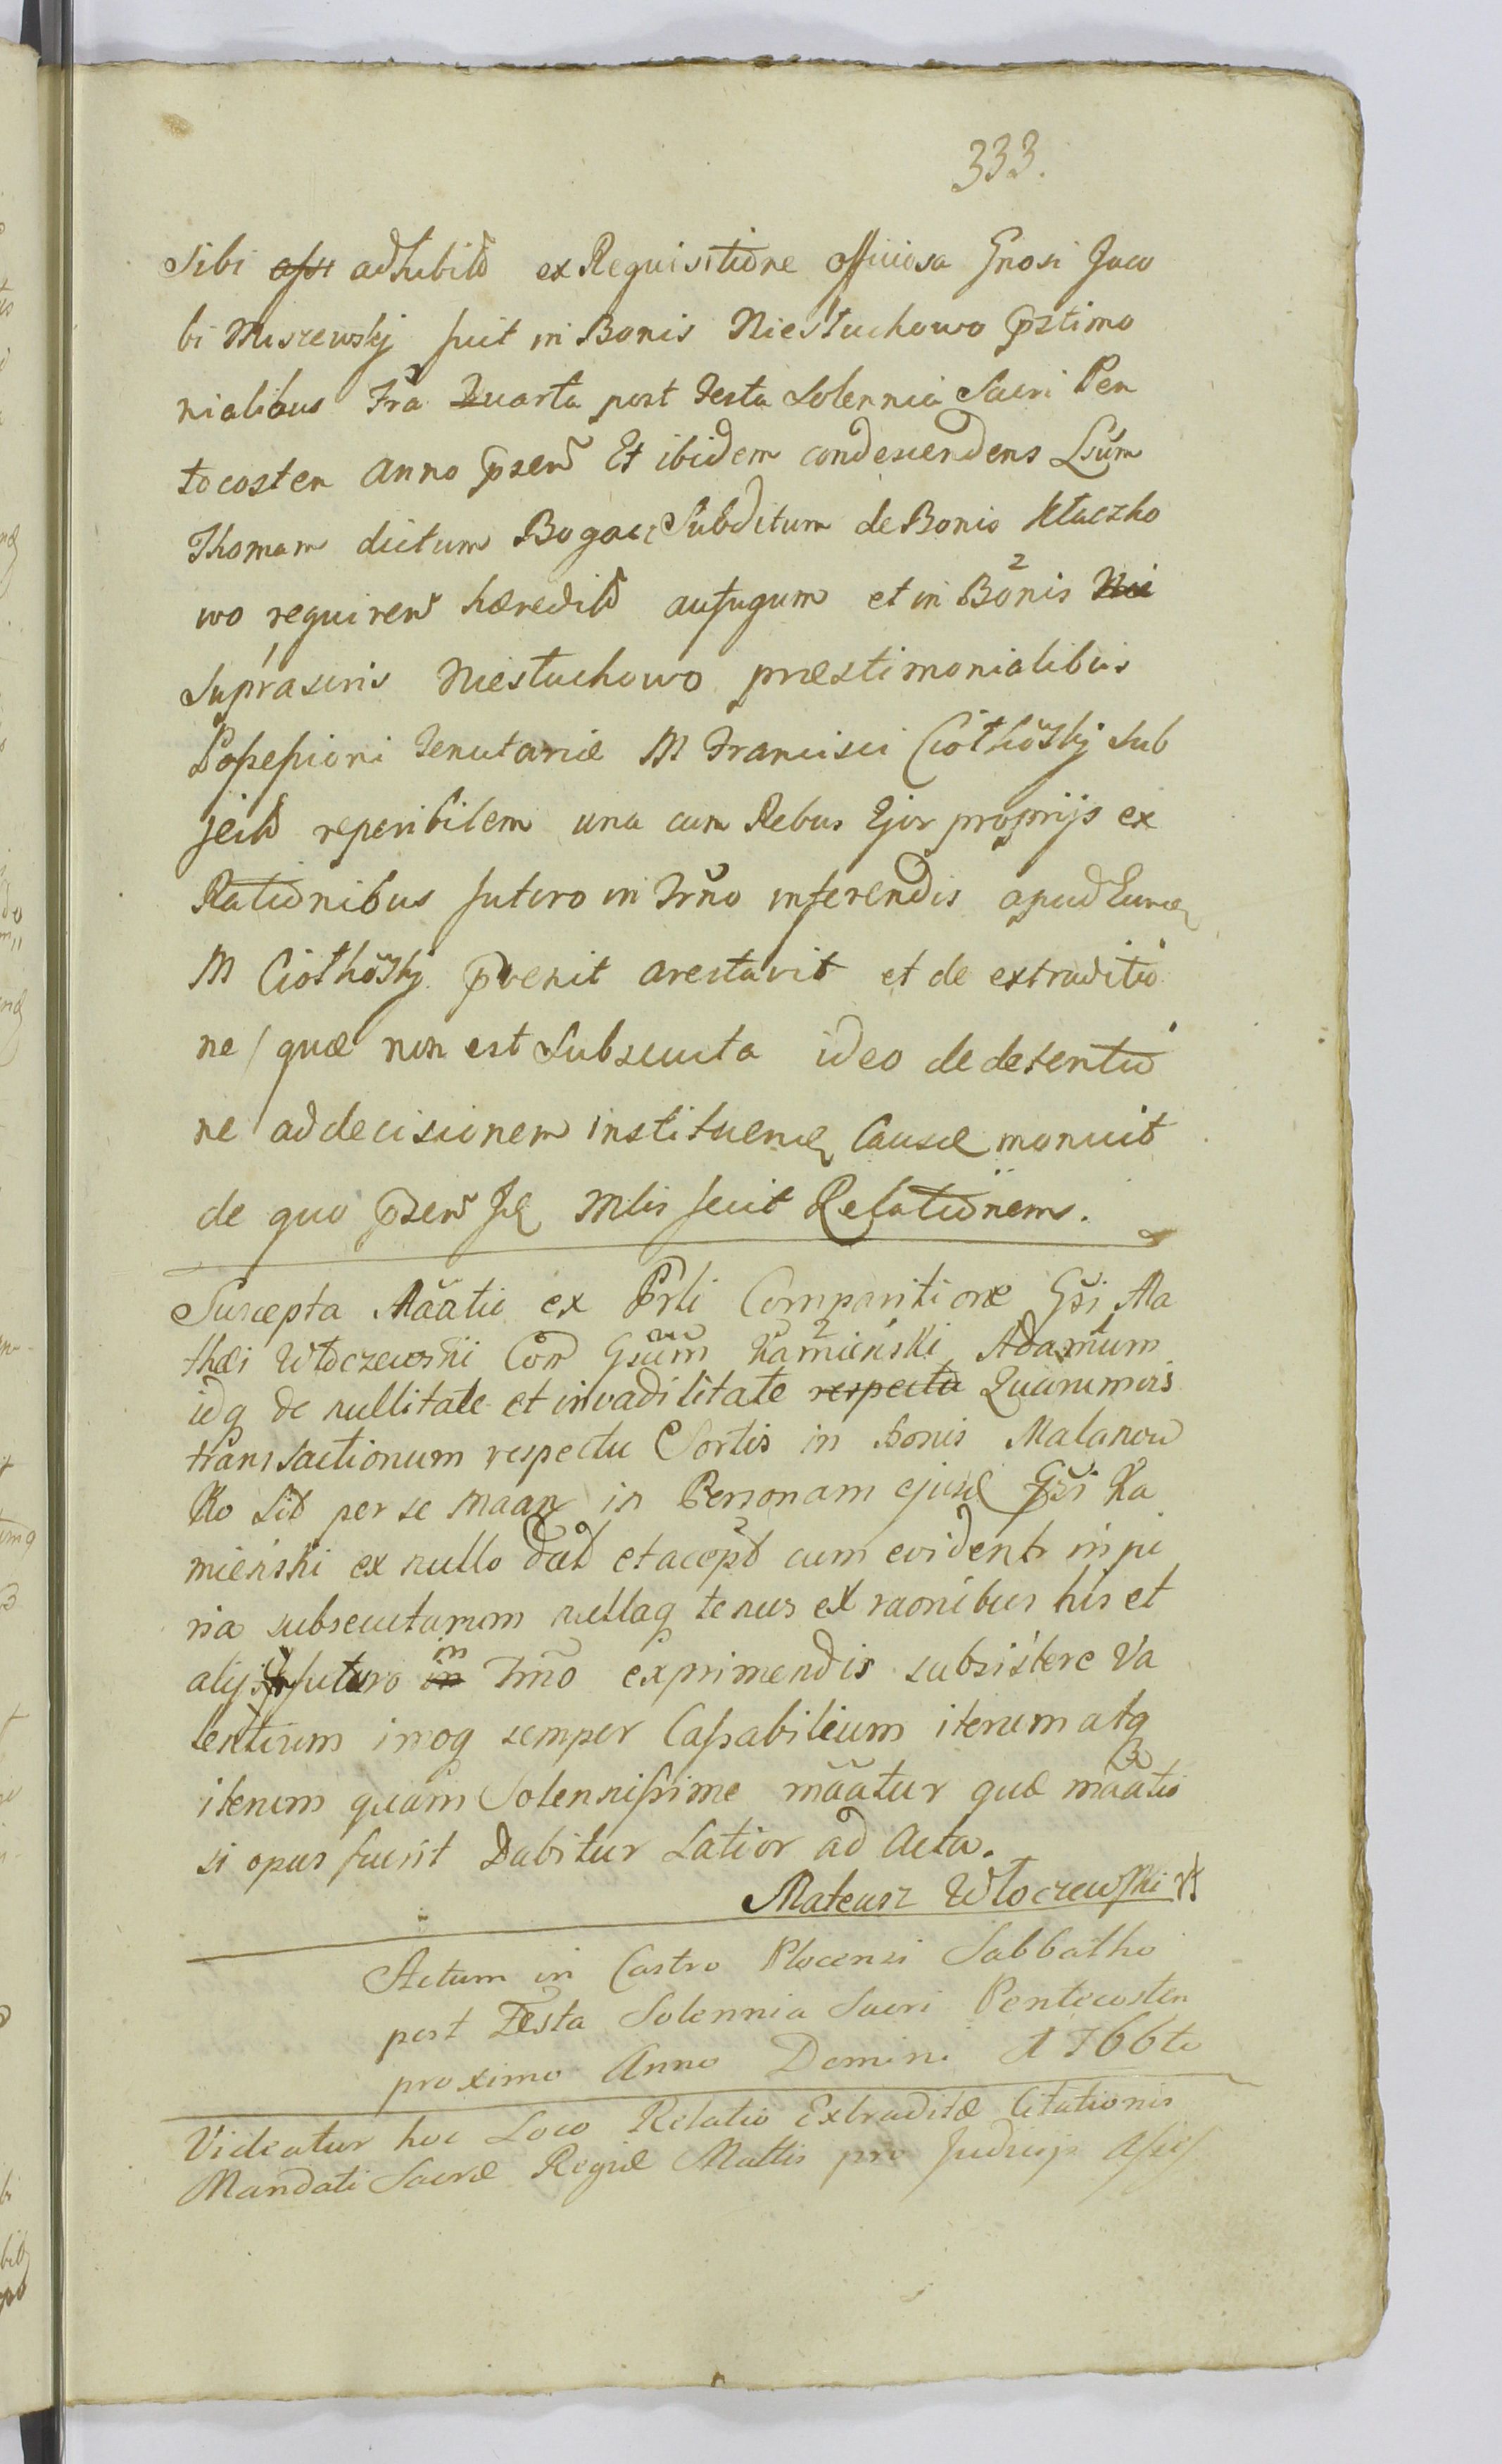 333.
Sibi adhibitô ex Requisitione officiosa Gnosi Jaco
bi Miszewskj fuit in Bonis Niesłuchowo pstimo
nialibus Fra Quarta post Festa Solennia Sacri Pen
tocosten Anno psen Et ibidem condescendens Lsum
Thomam dictum Bogac Subditum de Bonis Kłaczko
wo requiren hæredit aufugum et in Bonis Nie
suprascris Niesłuchowo præstimonialibus
Possessioni Tenutariæ M Francisci Ciołkoskj sub
ject reperibilem una cum Rebus Ejus proprijs ex
Rationibus futuro in Trno inferendis apud Eund
M Ciołkoskj pvenit arestavit et de extraditio
ne / quæ non est Subsecuta ideo de detentio
ne ad decisionem instituend Causæ monuit
de quo psen Jd Mlis fecit Relationem.
Suscepta Mãatio ex Prli Comparitione Gsi Ma
thæi Włoczewski Con Gsum Kamienski Adamum
idq de nullitate et invadilitate respectu Quarumvis
transactionum respectu Sortis in Bonis Malanow
ko sit per se maan in Personam ejusd Gsi Ka
mieński ex nullo dat et accept cum evidenti inju
ria subsecutarum nullaq tenus ex raonibus his et
alijs futuro in Trno exprimendis subsistere Va
lentium imoq semper Cassabilium iterum atq
iterum quam Solennissime mãatur quæ mãatio
si opus fuerit Dabitur Latior ad Acta.
Mateusz Włoczewski
Actum in Castro Plocensi Sabbatho
post Festa Solennia Sacri Pentecosten
proximo Anno Domini 1766to
Videatur hoc Loco Relatio Extraditæ Citationis
Mandati Sacræ Regiæ Mattis pro Judicijs Asses